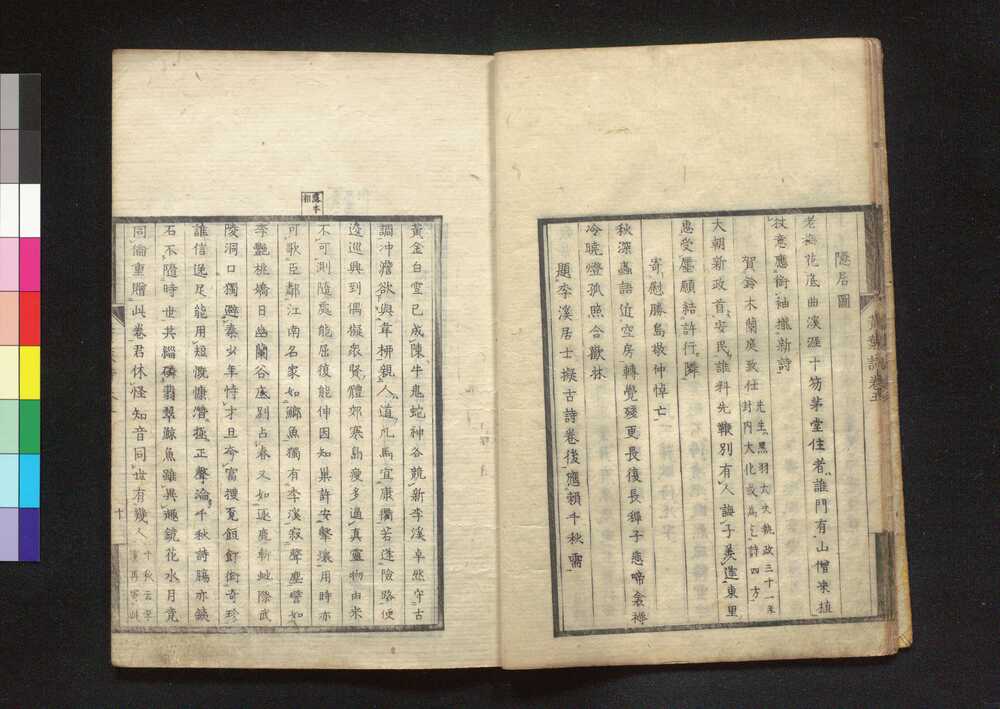 隱居圖
老梅花底曲溪涯十笏茅堂住者誰門有山僧來植
杖意應銜袖攏新詩
賀鈴木蘭庾致仕先生黑羽大夫執政三十一年封內大化或爲之詩四方
大朝新政首安民誰料先鞭別有人誨子羨蓬東里
惠受廛願結許行隣
寄慰勝島敬仲悼亡
秋深蟲語近空房轉覺殘更長復長穉子慈啼衾褥
冷曉燈孤照合歡牀
題李溪居士擬古詩卷後應賴千秋需
黃金白雪已成陳牛鬼蛇神各競新李溪卓然守古
調沖澹欲與韋柳親人道凡馬宜康衢若逢險路便
逡巡興到偶擬衆賢體郊寒島瘦多逼真靈物由來
不可測隨處能屈復能伸因知巢許安擊壤用時亦
可歌臣鄰江南名家如鯽魚獨有李溪寂聲塵譬如
李艷桃嬌日幽蘭谷底別占春又如逐鹿斬蛇際武
陵洞口獨避秦少年恃才且夸富摟覓飣餖衒奇珍
誰信逸足能用短慨慷潛極正聲淪千秋詩腸亦鐵
石不隨時世共緇磷翡翠鯨魚雖異趣鏡花水月竟
同倫重贈此卷君休怪知音同世有幾人